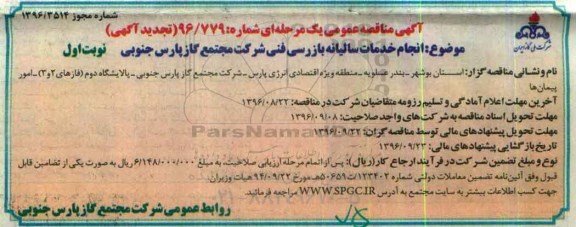 شماره مجوز ۱۳۹۶/۳۵۱۴
آگهی مناقصه عمومی یک مرحله‌ای شماره: ۹۶/۷۷۹ (تجدید آگهی)
موضوع: انجام خدمات سالیانه بازرسی فنی شرکت مجتمع گاز پارس جنوبی نوبت اول
نام و نشانی مناقصه گزار: اسستان بوشهر ـ بندر عسلویه ـ منطقه ویژه اقتصادی انرژی پارس ـ شرکت مجتمع گاز پارس جنوبی ـ پالایشگاه دوم (فازهای ۲و۳) ـ امور
پیمان‌ها
آخرین مهلت اعلام آمادگی و تسلیم رزومه متقاضیان شرکت در مناقصه: ۱۳۹۶/۰۸/۲۲
مهلت تحویل اسناد مناقصه به شرکت‌های واجد صلاحیت: ۱۳۹۶/۰۹/۰۸
مهلت تحویل پیشنهادهای مالی توسط مناقصه گران: ۱۳۹۶/۰۹/۲۲
تاریخ بازگشایی پیشنهادهای مالی: ۱۳۹۶/۰۹/۲۳
نوع و مبلغ تضمین شرکت در فرآیند ارجاع کار (ریال): پس از اتمام مرحله ارزیابی صلاحیت، به مبلغ ۶/۱۴۸/۰۰۰/۰۰۰ ریال به صورت یکی از تضامین قابل
قبول وفق آئین‌نامه تضمین معاملات دولتی شماره ۱۲۳۴۰۲/ت۵۰۶۵۹هـ مورخ ۹۴/۰۹/۲۲ هیات وزیران.
جهت کسب اطلاعات بیشتر به سایت مجتمع به آدرس WWW.SPGC.IR مراجعه فرمائید.
روابط عمومی شرکت مجتمع گاز پارس جنوبی